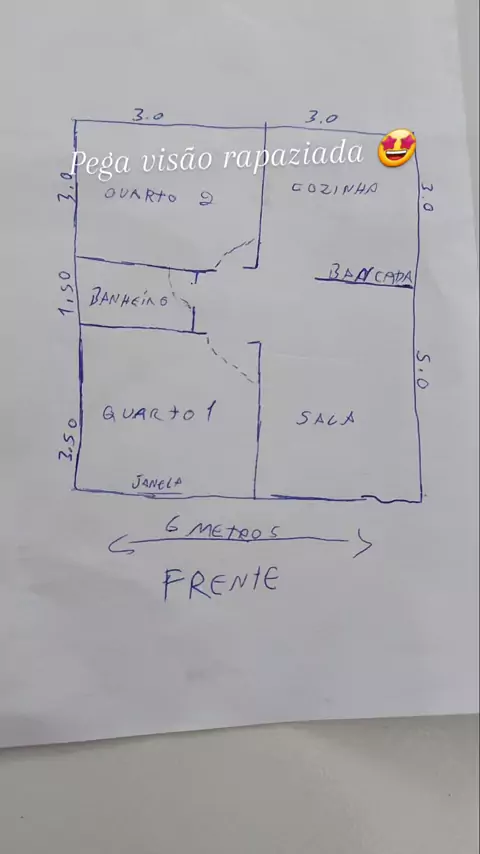 3.0
3.0
Pega visão rapaziada
3.0
QUARTO 2
COZINHA
3.0
BANCADA
1,50
BANHEIRO
5.0
3.50
QUARTO 1
SALA
JANELA
6 METROS
FRENTE